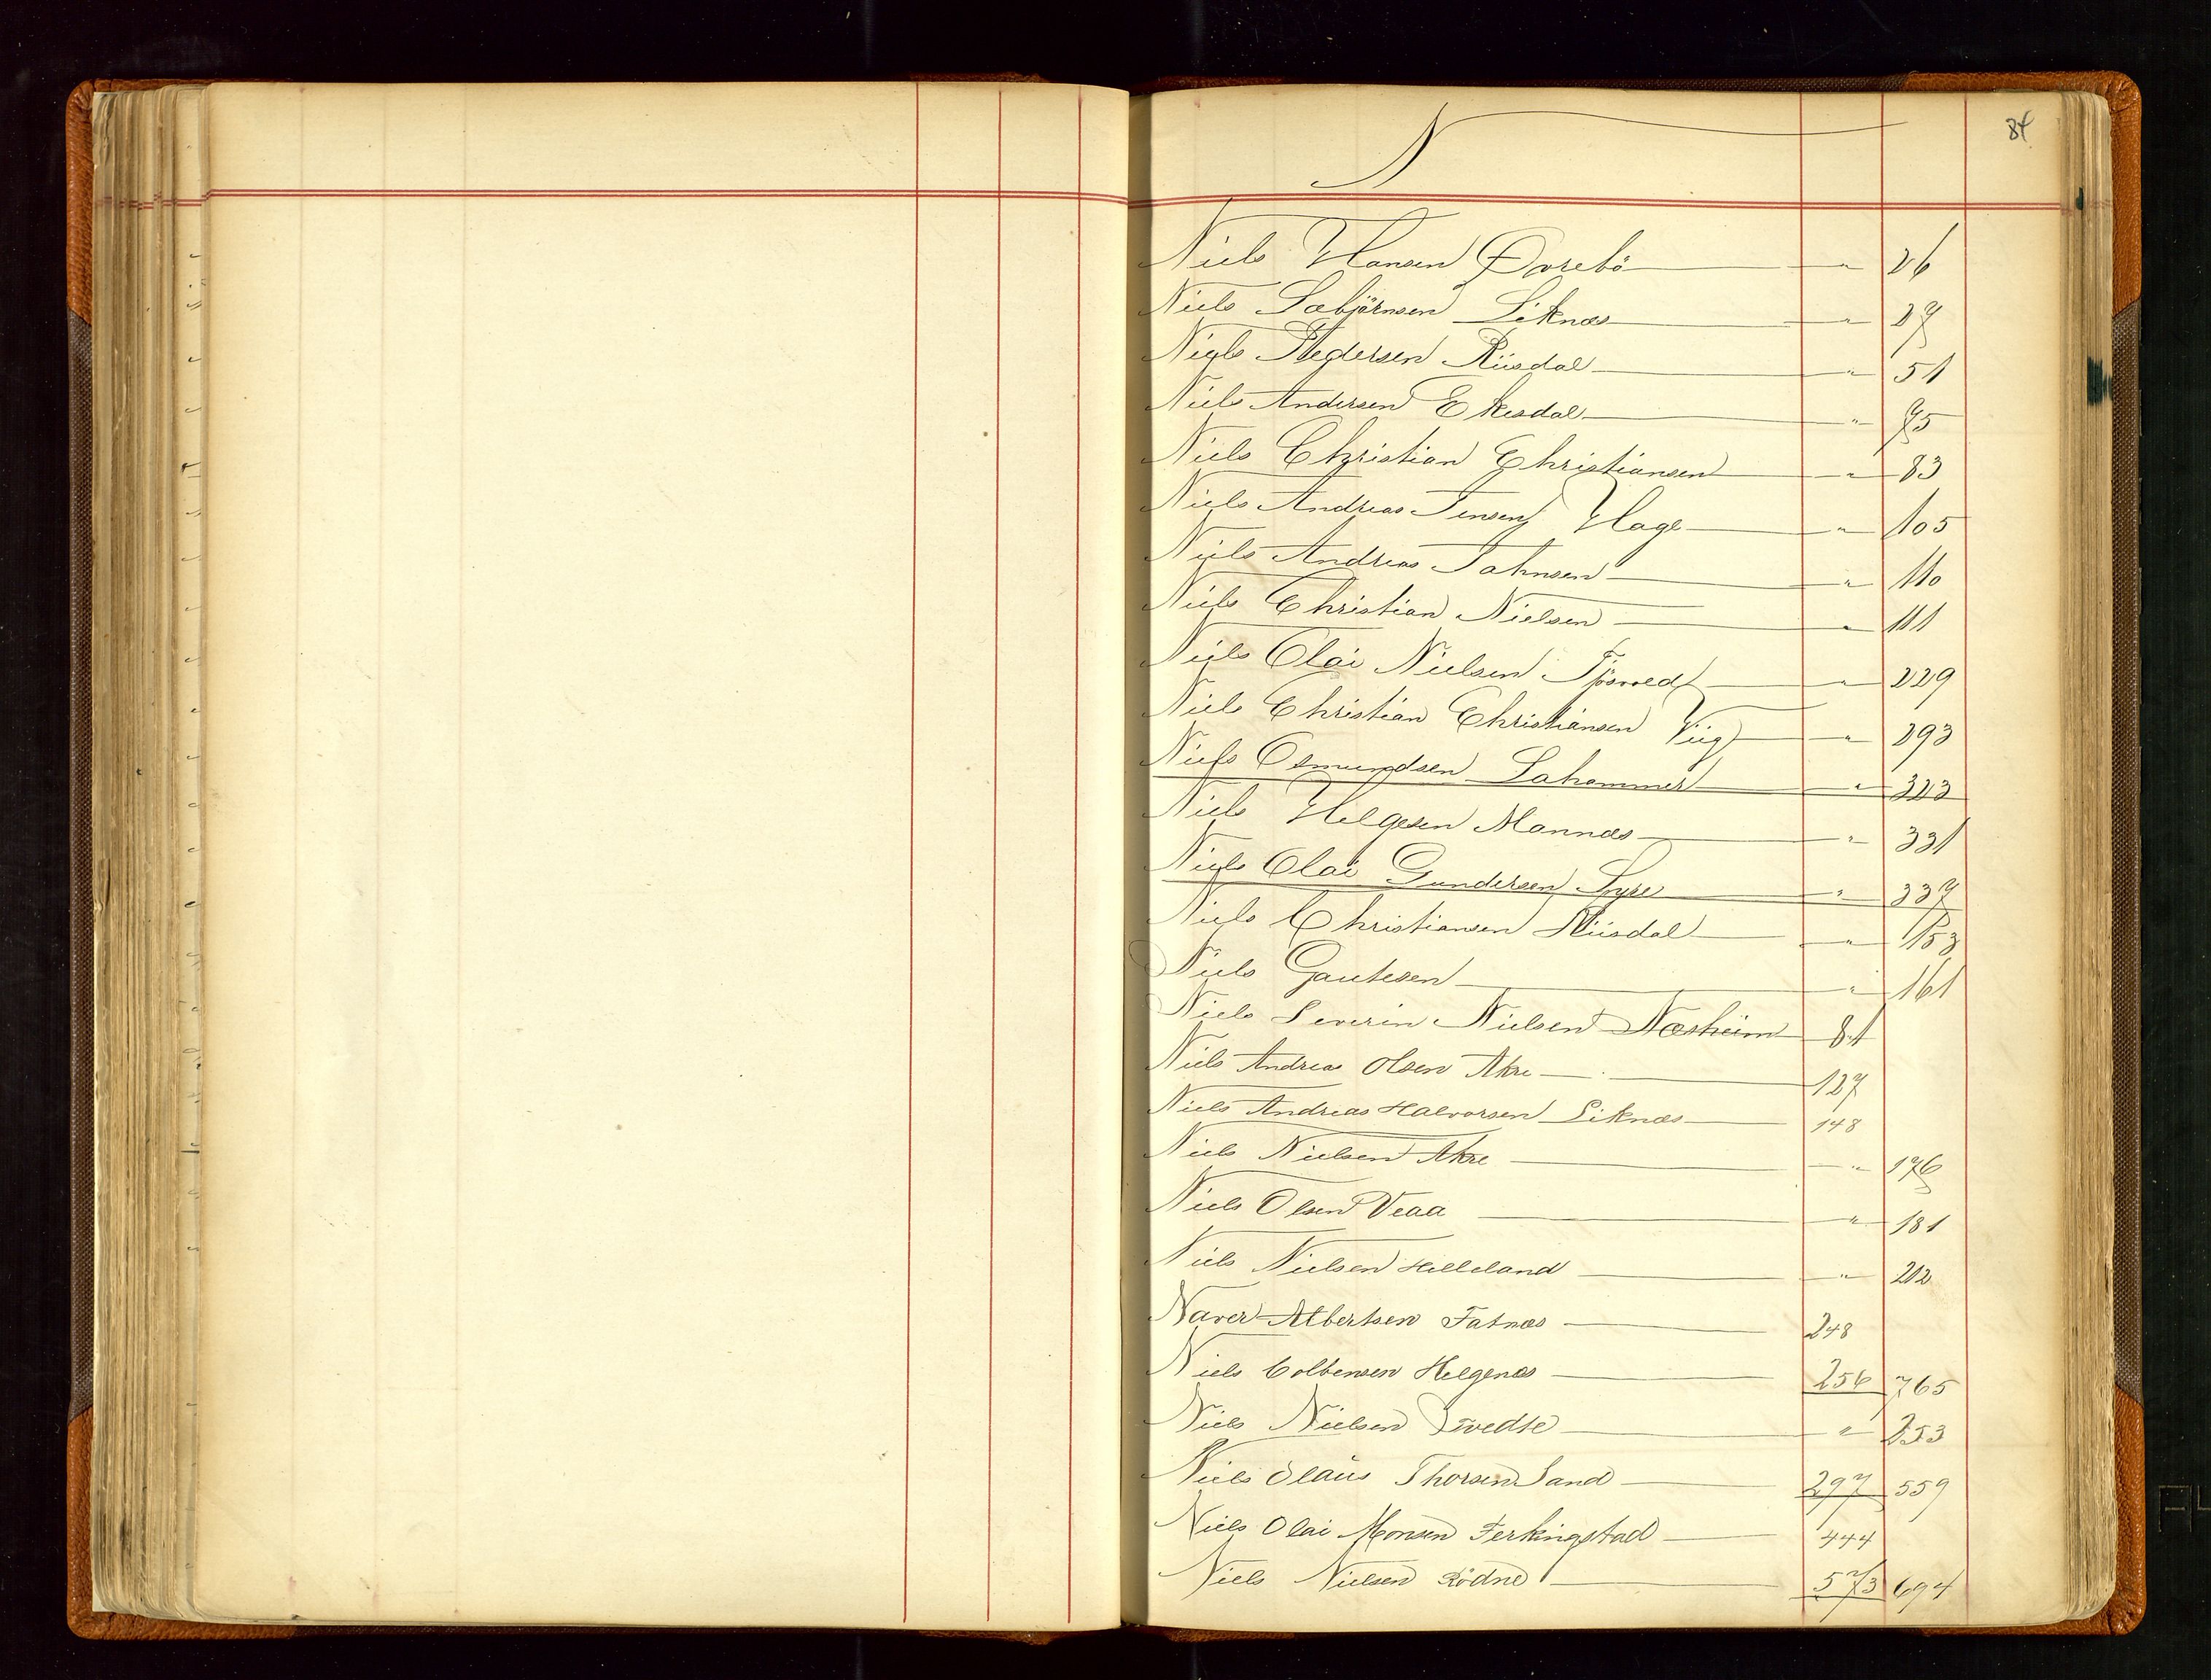 84
N
Niels Hansen Dorebö " 26
Niels Sæbjörnsen Liknæs " 27
Niels Pedersen Riisdal " 51
Niels Andersen Ekesdal " 75
Niels Christian Christiansen " 83
Niels Andreas Jensen Hage " 105
Niels Andreas Johnsen " 110
Niels Christian Nielsen " 111
Niels Olai Nielsen Tjösvold " 229
Niels Christian Christiansen Viig " 293
Niels Osmundsen Lahammer " 323
Niels Helgesen Mannæs " 331
Niels Olai Gundersen Syre " 337
Niels Christiansen Riisdal " 153
Niels Gautesen " 161
Niels Severin Nielsen Næsheim 81
Niels Andreas Olsen Akre 127
Niels Andreas Halvorsen Liknæs 148
Niels Nielsen Akre " 176
Niels Olsen Veaa " 181
Niels Nielsen Helleland " 212
Naver Albertsen Fatnæs 248
Niels Colbensen Helgenæs 256 765
Niels Nielsen Tvedte " 253
Niels Olaus Thorsen Sand 297 559
Niels Olai Monsen Ferkingstad 444
Niels Nielsen Rödne 573 694